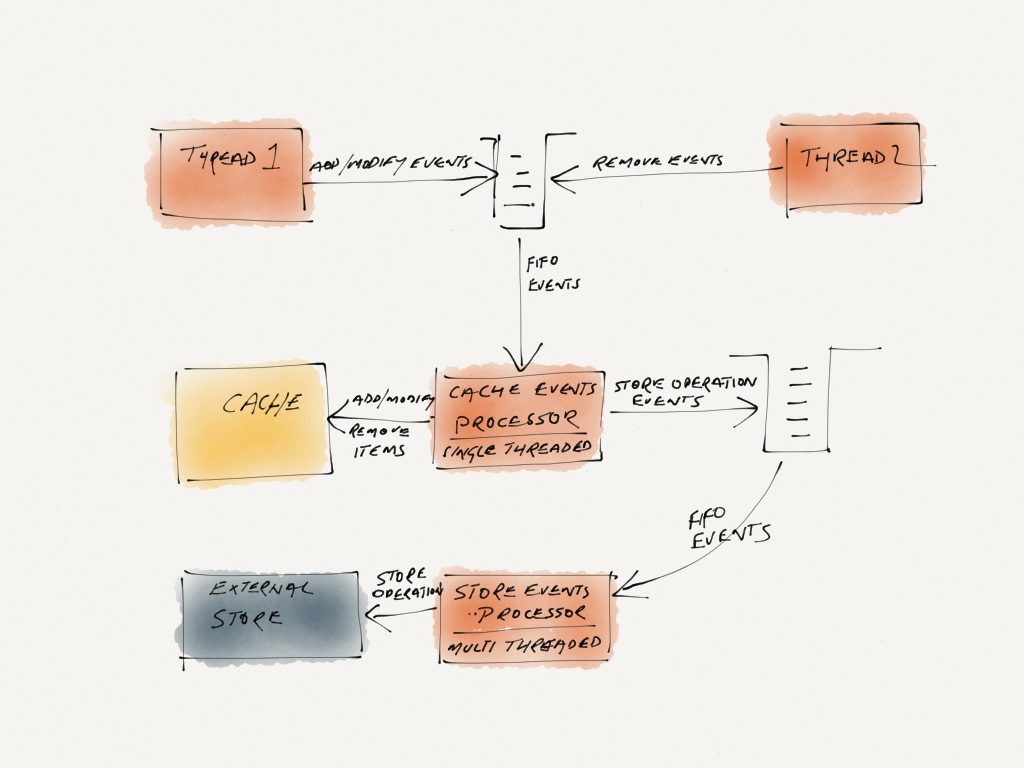 THREAD 1
ADD/MODIFY EVENTS
REMOVE EVENTS
THREAD 2
FIFO
EVENTS
CACHE
ADD/MODIFY
REMOVE
ITEMS
CACHE EVENTS
PROCESSOR
SINGLE THREADED
STORE OPERATION
EVENTS
FIFO
EVENTS
EXTERNAL
STORE
STORE
OPERATION
STORE EVENTS
PROCESSOR
MULTI THREADED